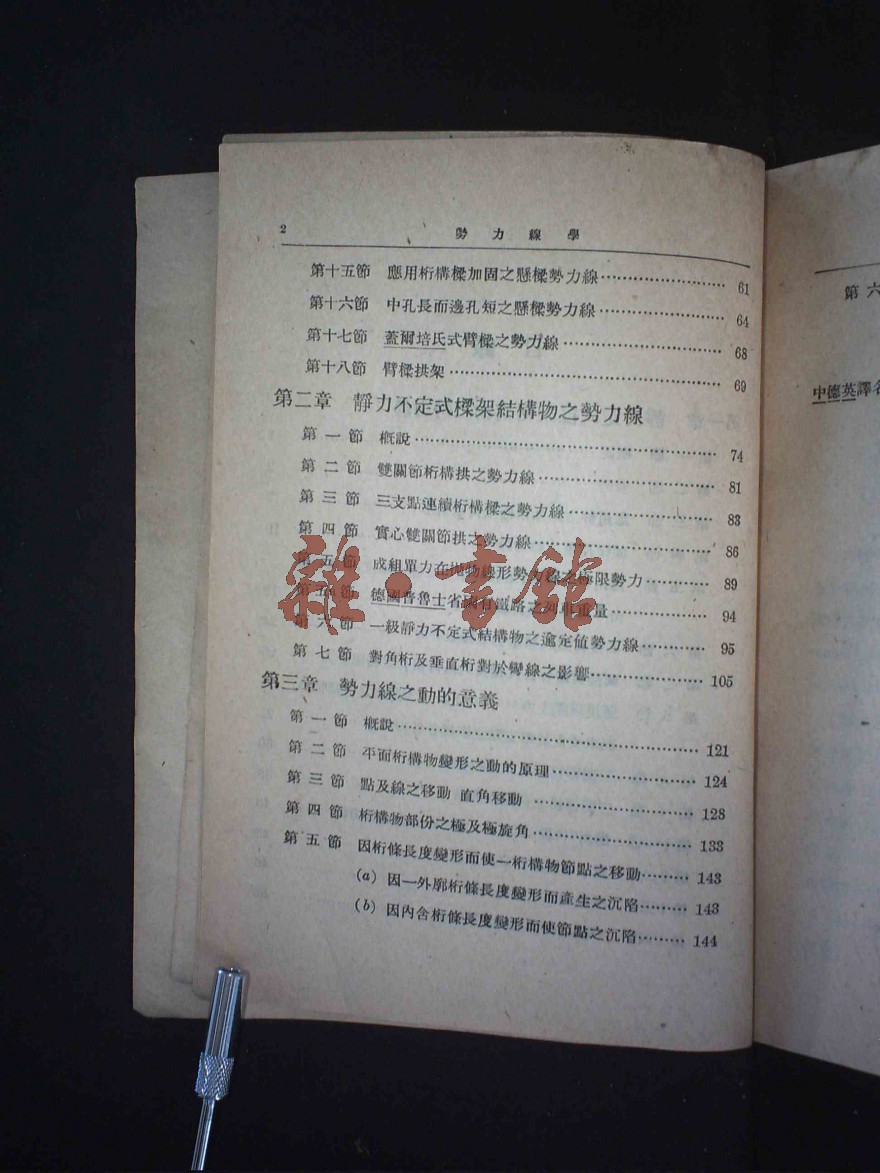 2 勢力線學
第十五節 應用桁構樑加固之懸樑勢力線 61
第十六節 中孔長而邊孔短之懸樑勢力線 64
第十七節 蓋爾培氏式臂樑之勢力線 68
第十八節 臂樑拱架 69
第二章 靜力不定式樑架結構物之勢力線
第一節 概說 74
第二節 雙關節桁構拱之勢力線 81
第三節 三支點連續桁構樑之勢力線 83
第四節 實心雙關節拱之勢力線 86
第五節 成組單力在拋物線形勢力線之極限勢力 89
德國普魯士省國有鐵路之列車重量 94
第六節 一級靜力不定式結構物之逾定値勢力線 95
第七節 對角桁及垂直桁對於彎線之影響 105
第三章 勢力線之動的意義
第一節 概說 121
第二節 平面桁構物變形之動的原理 124
第三節 點及線之移動 直角移動 128
第四節 桁構物部份之極及極旋角 133
第五節 因桁條長度變形而使一桁構物節點之移動 143
(a) 因一外廓桁條長度變形而產生之沉陷 143
(b) 因內含桁條長度變形而使節點之沉陷 144
第六
中德英譯名
雜·書館